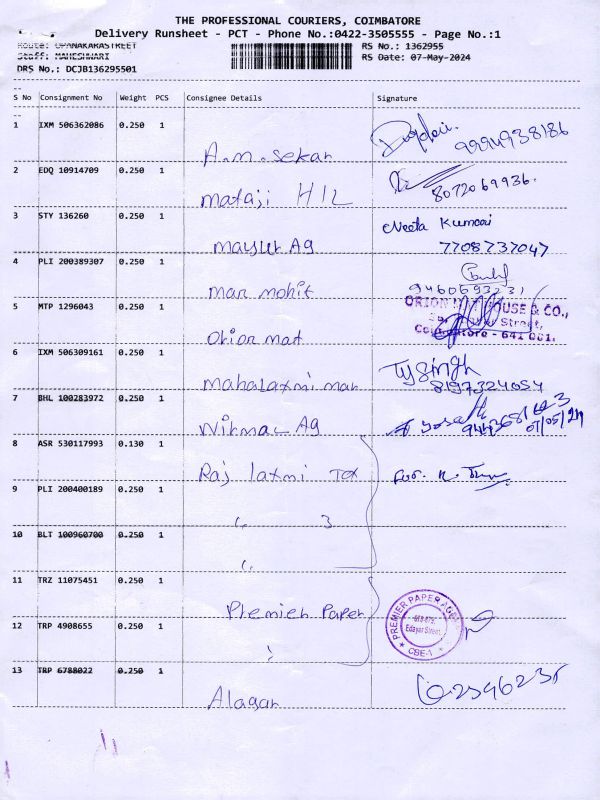 THE PROFESSIONAL COURIERS, COIMBATORE
Delivery Runsheet - PCT - Phone No.:0422-3505555 - Page No.:1
Route: OPANAKARASTREET RS No.: 1362955
Staff: MAHESHWARI RS Date: 07-May-2024
DRS No.: DCJB136295501
S No Consignment No Weight PCS Consignee Details Signature
1 IXM 506362086 0.250 1
A.m.sekar 9994938186
2 EDQ 10914709 0.250 1
mataji HIL 8072069936.
3 STY 136260 0.250 1 Neeta Kumari
mayur Ag 7708737047
4 PLI 200389307 0.250 1
mar mohit 9460693231
5 MTP 1296043 0.250 1 ORION HOUSE & CO.,
Street,
orion mat Coimbatore - 641 001.
6 IXM 506309161 0.250 1 Tysingh
mahalaxmi mar 8197324054
7 BHL 100283972 0.250 1
Nirmal Ag 07/05/24
8 ASR 530117993 0.130 1
Raj laxmi Tex for.
9 PLI 200400189 0.250 1
" 3
10 BLT 100960700 0.250 1
"
11 TRZ 11075451 0.250 1
Premier Paper PREMIER PAPER
12 TRP 4908655 0.250 1 Edayar Street,
" CBE-1
13 TRP 6788022 0.250 1
Alagar